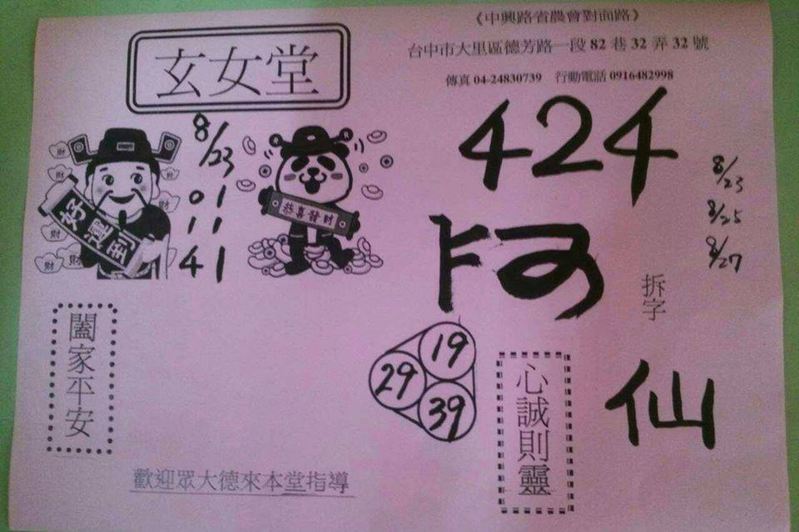 《中興路省農會對面路》
台中市大里區德芳路一段 82 巷 32 弄 32 號
傳真 04-24830739 行動電話 0916482998
玄女堂
8/23
01
11
41
好運到
恭喜發財
財
財
財
財
424
8/23
8/25
8/27
拆字
仙
19
29
39
闔家平安
心誠則靈
歡迎眾大德來本堂指導